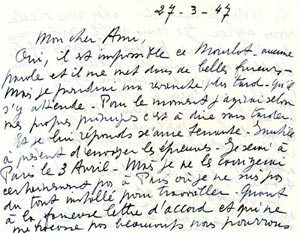 27-3-47
Mon cher Ami,
Oui, il est impossible ce Mourlot - aucune
parole et il me met dans de belles fureurs -
Mais je prendrai ma revanche plus tard - qu'il
s'y attende - Pour le moment j'agirai selon
mes propres principes c'est à dire sans tarder.
Et je lui réponds
à présent d'envoyer les épreuves - Je serai à
Paris le 3 Avril - Mais je ne les corrigerai
certainement pas à Paris où je ne suis pas
du tout installé pour travailler - Quant
à la fameuse lettre d'accord et qui ne
me favorise pas beaucoup nous pourrons